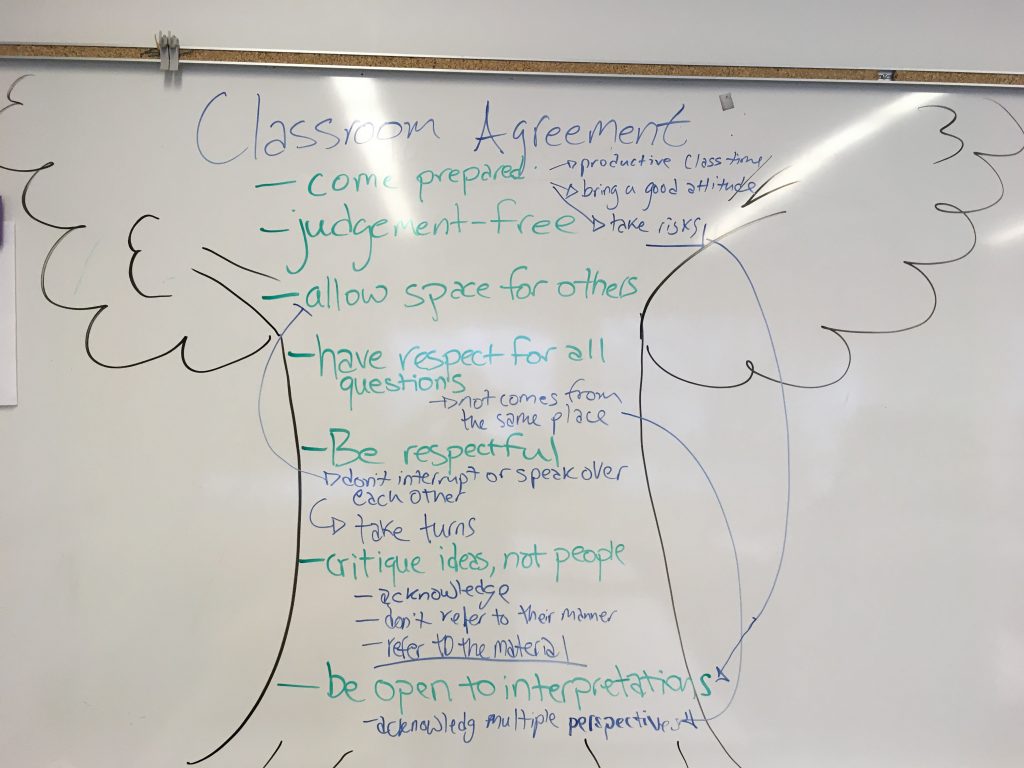 Classroom Agreement
- come prepared. → productive class time
→ bring a good attitude
→ take risks!
- judgement-free
- allow space for others
- have respect for all
questions
→ not comes from
the same place
- Be respectful
→ don't interrupt or speak over
each other
→ take turns
- critique ideas, not people
- acknowledge
- don't refer to their manner
- refer to the material
- be open to interpretations
- acknowledg multiple perspectives